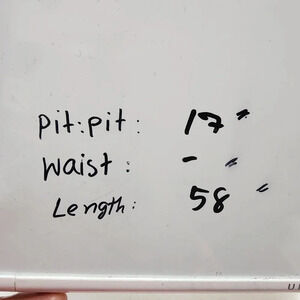 Pit:pit: 17"
Waist: - "
Length: 58 "